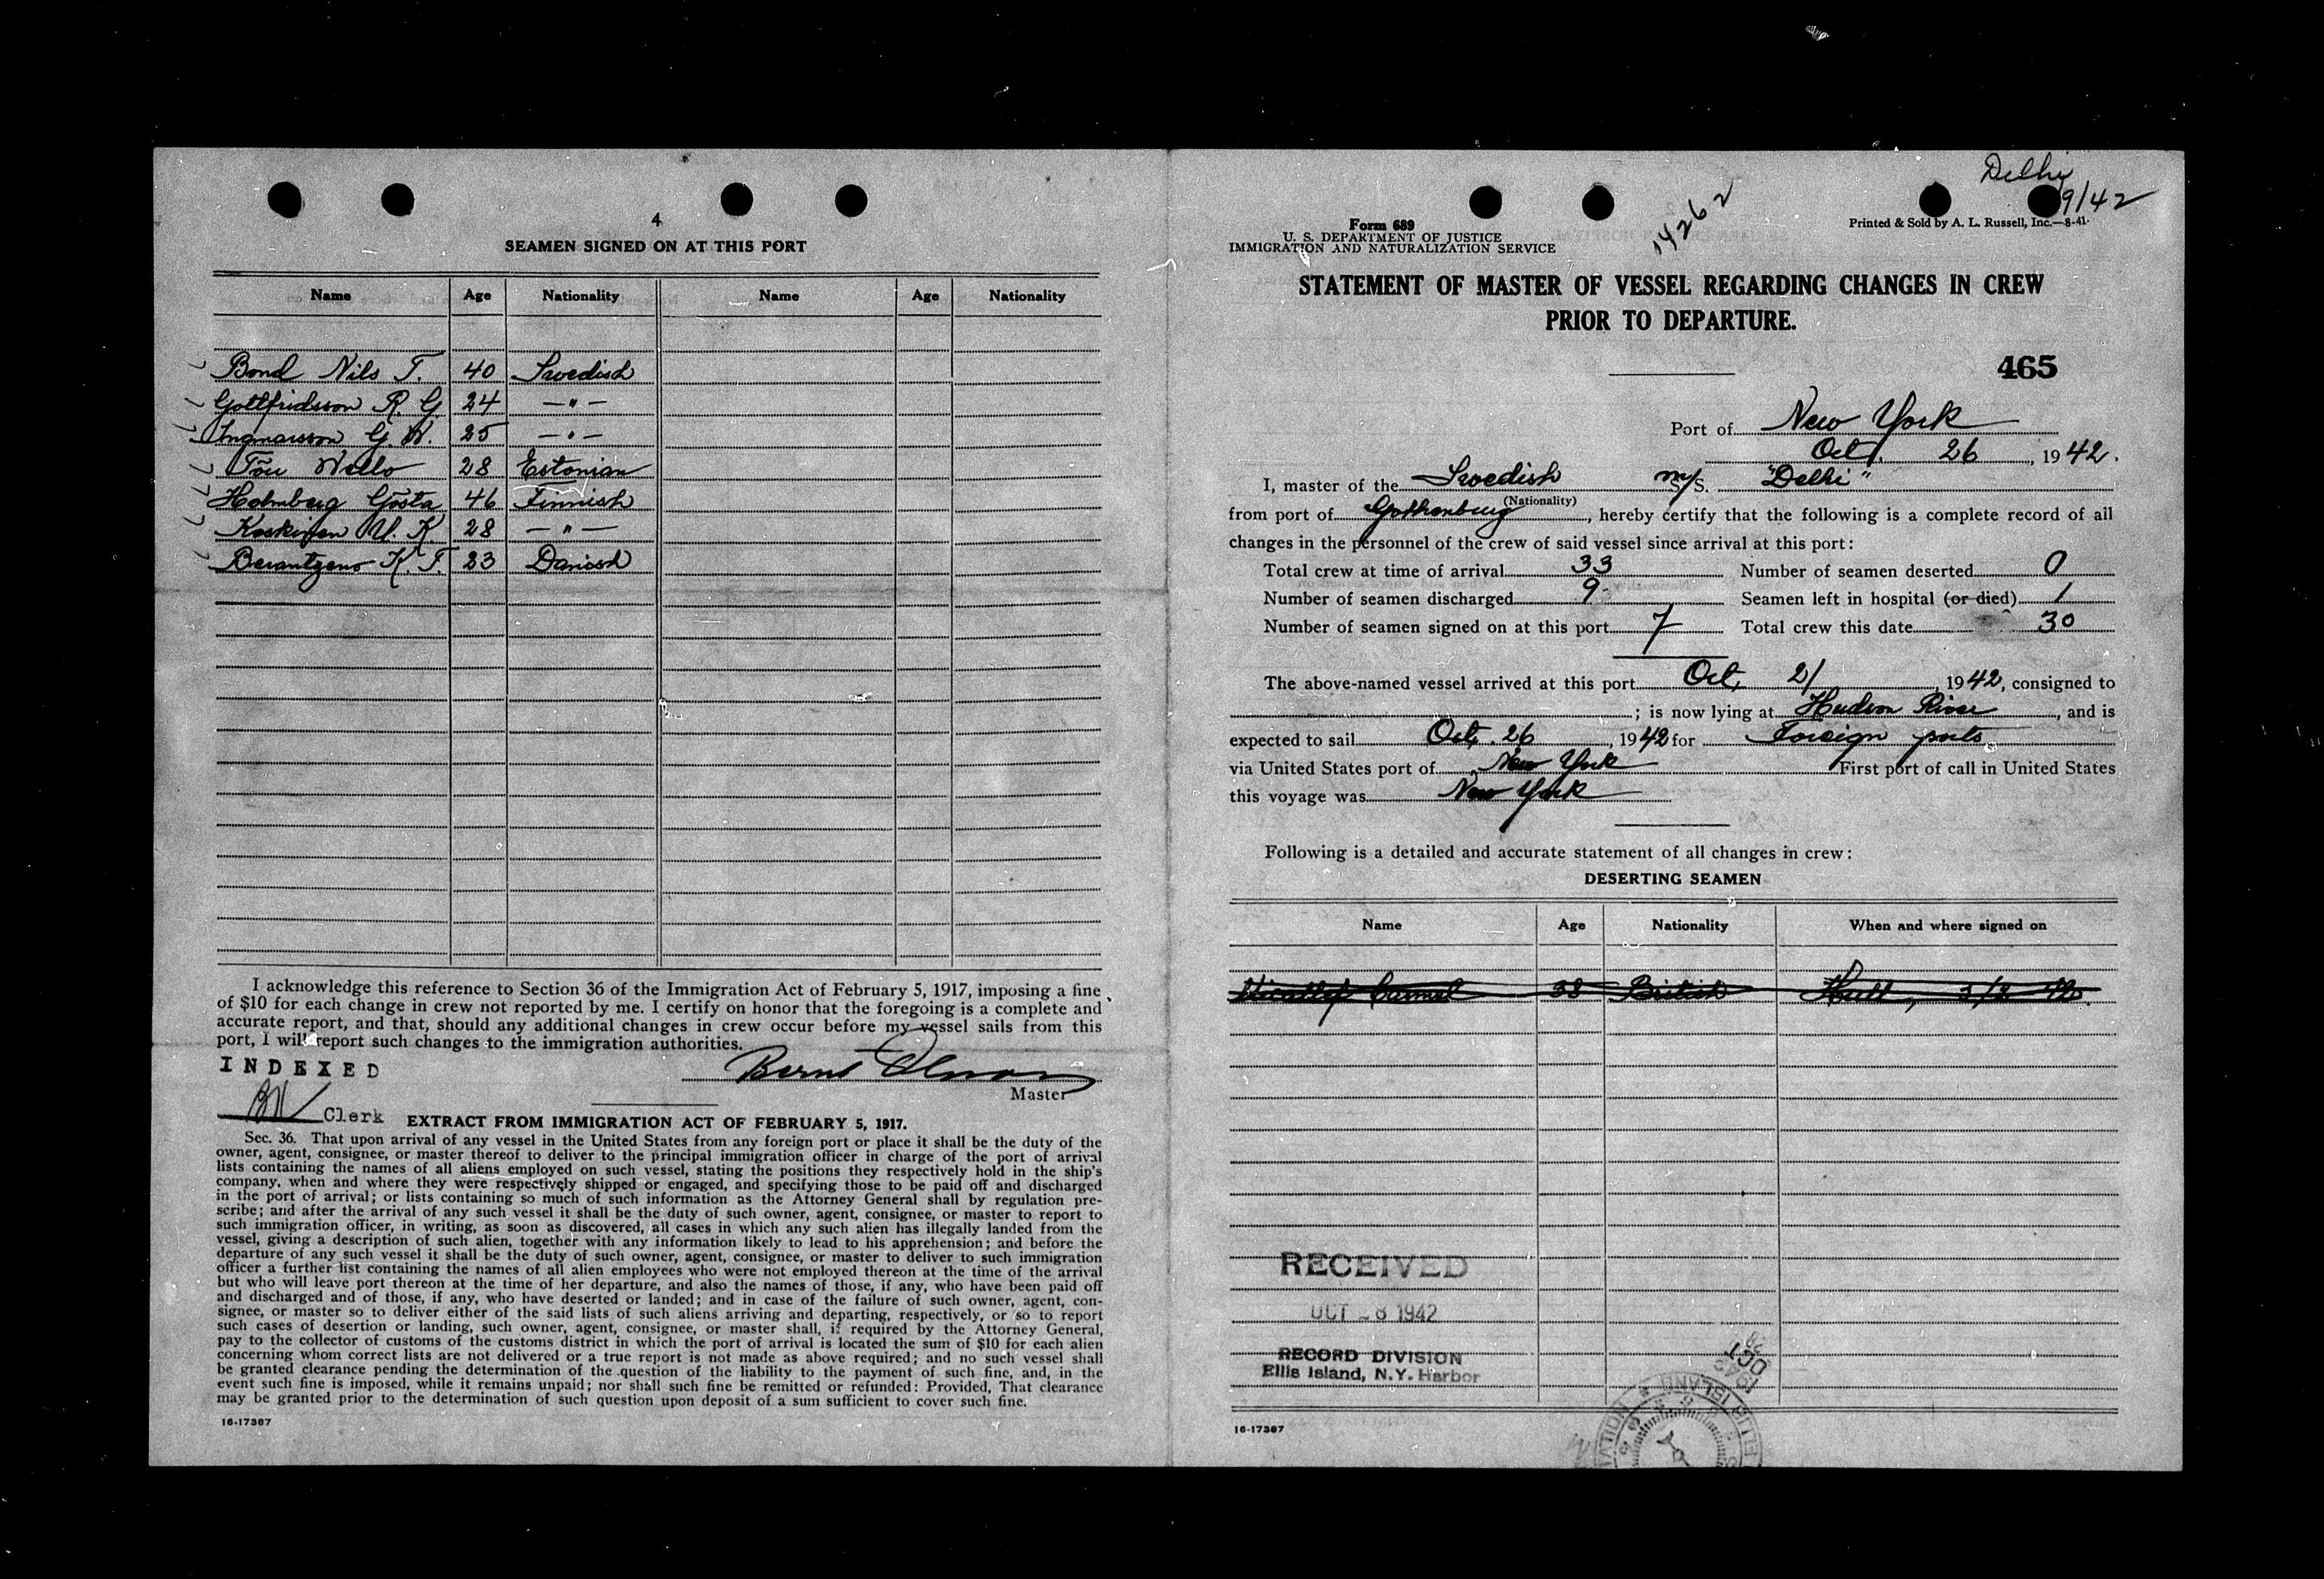 4
SEAMEN SIGNED ON AT THIS PORT
Name Age Nationality Name Age Nationality
Bond Nils T. 40 Swedish
Gottfridsson R. G. 24 — " —
Ingmarsson G. W. 25 — " —
Wello 28 Estonian
Holmberg Gösta 46 Finnish
Koskinen U. K. 28 — " —
K. T. 23 Danish
I acknowledge this reference to Section 36 of the Immigration Act of February 5, 1917, imposing a fine
of $10 for each change in crew not reported by me. I certify on honor that the foregoing is a complete and
accurate report, and that, should any additional changes in crew occur before my vessel sails from this
port, I will report such changes to the immigration authorities.
INDEXED
Master
Clerk
EXTRACT FROM IMMIGRATION ACT OF FEBRUARY 5, 1917.
Sec. 36. That upon arrival of any vessel in the United States from any foreign port or place it shall be the duty of the
owner, agent, consignee, or master thereof to deliver to the principal immigration officer in charge of the port of arrival
lists containing the names of all aliens employed on such vessel, stating the positions they respectively hold in the ship's
company, when and where they were respectively shipped or engaged, and specifying those to be paid off and discharged
in the port of arrival; or lists containing so much of such information as the Attorney General shall by regulation pre-
scribe; and after the arrival of any such vessel it shall be the duty of such owner, agent, consignee, or master to report to
such immigration officer, in writing, as soon as discovered, all cases in which any such alien has illegally landed from the
vessel, giving a description of such alien, together with any information likely to lead to his apprehension; and before the
departure of any such vessel it shall be the duty of such owner, agent, consignee, or master to deliver to such immigration
officer a further list containing the names of all alien employees who were not employed thereon at the time of the arrival
but who will leave port thereon at the time of her departure, and also the names of those, if any, who have been paid off
and discharged and of those, if any, who have deserted or landed; and in case of the failure of such owner, agent, con-
signee, or master so to deliver either of the said lists of such aliens arriving and departing, respectively, or so to report
such cases of desertion or landing, such owner, agent, consignee, or master shall, if required by the Attorney General,
pay to the collector of customs of the customs district in which the port of arrival is located the sum of $10 for each alien
concerning whom correct lists are not delivered or a true report is not made as above required; and no such vessel shall
be granted clearance pending the determination of the question of the liability to the payment of such fine, and, in the
event such fine is imposed, while it remains unpaid; nor shall such fine be remitted or refunded: Provided, That clearance
may be granted prior to the determination of such question upon deposit of a sum sufficient to cover such fine.
16-17387
Delhi
9/42
14262
Form 689
U. S. DEPARTMENT OF JUSTICE
IMMIGRATION AND NATURALIZATION SERVICE
Printed & Sold by A. L. Russell, Inc.—8-41
STATEMENT OF MASTER OF VESSEL REGARDING CHANGES IN CREW
PRIOR TO DEPARTURE.
465
Port of New York
Oct. 26, 1942.
I, master of the Swedish m/S. "Delhi"
(Nationality)
from port of Gothenburg, hereby certify that the following is a complete record of all
changes in the personnel of the crew of said vessel since arrival at this port:
Total crew at time of arrival 33 Number of seamen deserted 0
Number of seamen discharged 9 Seamen left in hospital (or died) 1
Number of seamen signed on at this port 7 Total crew this date 30
The above-named vessel arrived at this port Oct. 21, 1942, consigned to
; is now lying at Hudson River, and is
expected to sail Oct. 26, 1942 for Foreign ports
via United States port of New York First port of call in United States
this voyage was New York
Following is a detailed and accurate statement of all changes in crew:
DESERTING SEAMEN
Name Age Nationality When and where signed on
38 British Hull,
RECEIVED
OCT 28 1942
RECORD DIVISION
Ellis Island, N.Y. Harbor
OCT
ELLIS ISLAND
16-17387